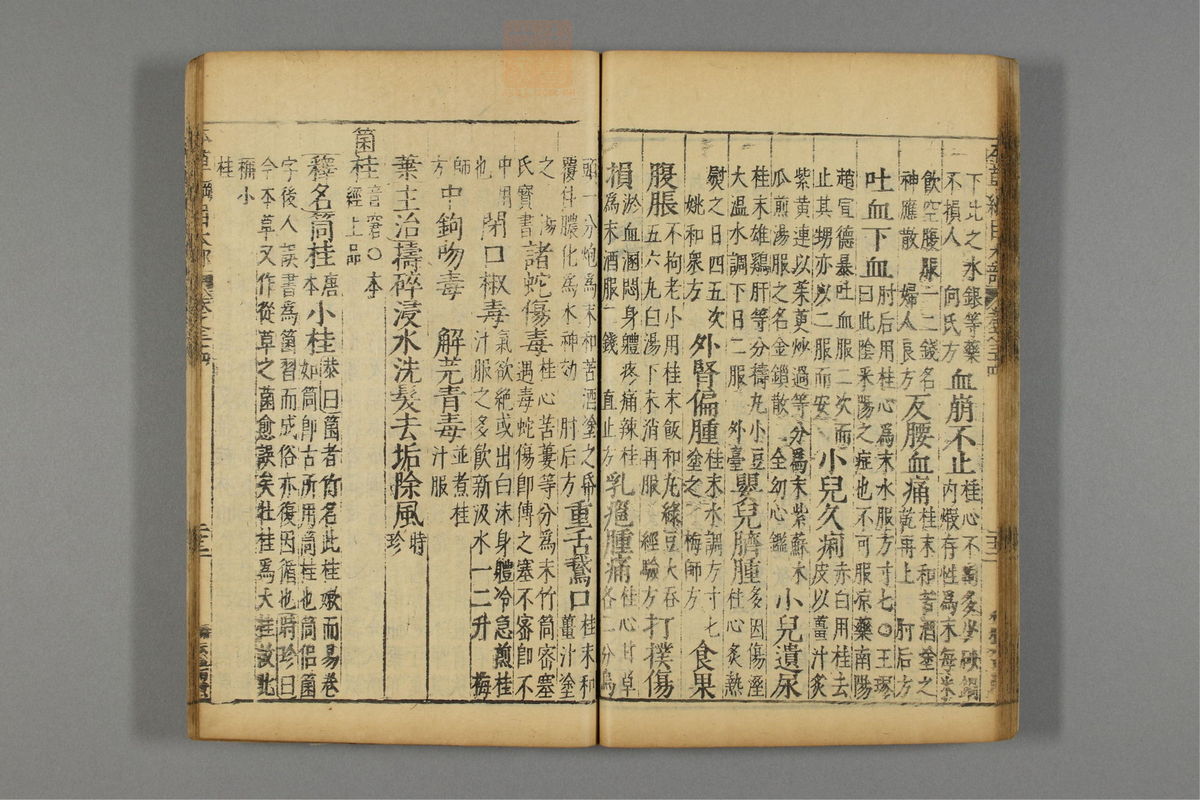 下此之水銀等藥
不損人 何氏方 血崩不止 桂心不
飲空腹服一二錢名
神應散 婦人良方 反腰血痛 桂末和苦酒塗之
乾再上 肘后方
吐血下血 肘后用桂心爲末水服方寸七〇王璆
曰此陰乘陽之症也不可服凉藥南陽
趙宣德暴吐血服二次而
止其甥亦以二服而安 小兒久痢 赤白用桂去
皮以薑汁炙
紫黄連以茱萸炒過等分爲末紫蘇木
瓜煎湯服之名金鎖散 全幼心鑑 小兒遺尿
桂末雄鷄肝等分擣丸小豆
大温水調下日二服 外臺 嬰兒臍腫 多因傷溼
桂心炙熱
熨之日四五次
姚和衆方 外腎偏腫 桂末水調方寸七
塗之 梅師方 食果
腹脹 不拘老小用桂末飯和丸綠豆大吞
五六丸白湯下未消再服 經驗方 打撲傷
損 淤血溷悶身軆疼痛辣桂
爲末酒服一錢 直止方 乳癰腫痛 桂心甘草
各二分烏
頭一分炮爲末和苦酒塗之帋
覆住膿化爲水神効 肘后方 重舌鵞口 桂末和
薑汁塗
之 湯
氏寳書 諸蛇傷毒 桂心苦蔞等分爲末竹筒密塞
遇毒蛇傷即傅之塞不密即不
中用
也 閉口椒毒 氣欲絶或出白沫身軆冷急煎桂
汁服之多飲新汲水一二升 梅
師
方 中鉤吻毒 解芫青毒 並煮桂
汁服
葉主治擣碎浸水洗髮去垢除風 時
珍
箘桂 音窘〇本
經上品
釋名筒桂 唐
本 小桂 恭曰箘者竹名此桂嫩而易卷
如筒即古所用筒桂也筒侣箘
字後人誤書爲箘習而成俗亦復因循也時珍曰
今本草又作從草之菌愈誤矣牡桂爲大桂故此
稱小
桂